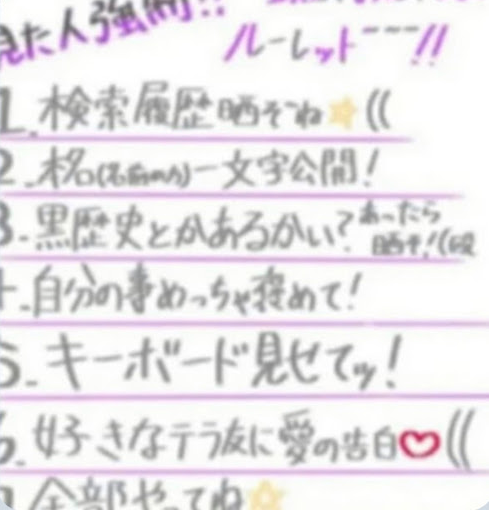 見た人強制!!
ルーレットーーー!!
1.検索履歴晒そうね☆((
2.本名(名前のみ)一文字公開!
3.黒歴史とかあるかい?あったら
晒せ!(殴
4.自分の事めっちゃ褒めて!
5.キーボード見せてッ!
6.好きなテラ友に愛の告白♡((
全部やってね☆